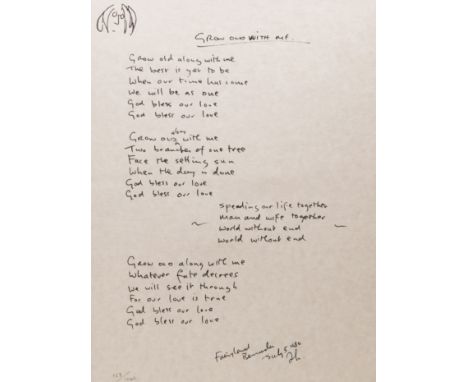 GROW OLD WITH ME.
Grow old along with me
The best is yet to be
When our time has come
We will be as one
God bless our love
God bless our love
Grow old along with me
Two branches of one tree
Face the setting sun
When the day is done
God bless our love
God bless our love
spending our life together
man and wife together
world without end
world without end
Grow old along with me
Whatever fate decrees
We will see it through
For our love is true
God bless our love
God bless our love
Fairyland
Bermuda
July 5